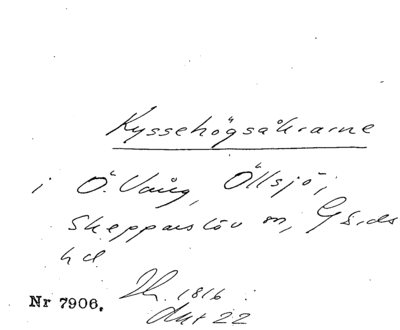 Kyssehögsåkrarne
i Ö. Vång, Öllsjö,
Skepparslöv sn, Gärds
hd
Nr 7906. 1816
Akt 22